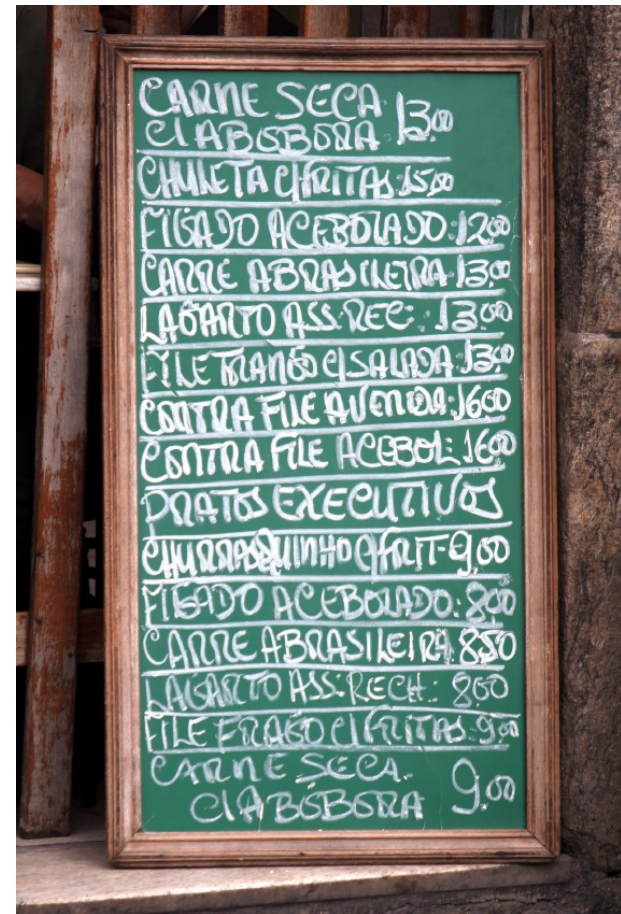 CARNE SECA 13.00
C/ ABOBORA
CHULETA C/FRITAS: 15,00
FIGADO ACEBOLADO: 12.00
CARRE ABRASILEIRA 13.00
LAGARTO ASS. REC: 13.00
FILE FRANGO C/SALADA: 13.00
CONTRA FILE AVENIDA: 16.00
CONTRA FILE ACEBOL: 16.00
PRATOS EXECUTIVOS
CHURRASQUINHO C/FRIT- 9.00
FIGADO ACEBOLADO: 8.00
CARRE ABRASILEIRA 8.50
LAGARTO ASS. RECH: 8.00
FILE FRAGO C/FRITAS: 9.00
CARNE SECA.
C/ ABOBORA 9.00